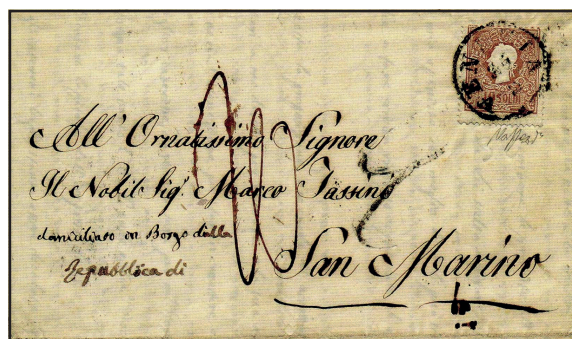 VENEZIA
SOLDI
All' Ornatissimo Signore
Il Nobil Sig.r Marco Tassino
domiciliato in Borgo dalla
Repubblica di
San Marino